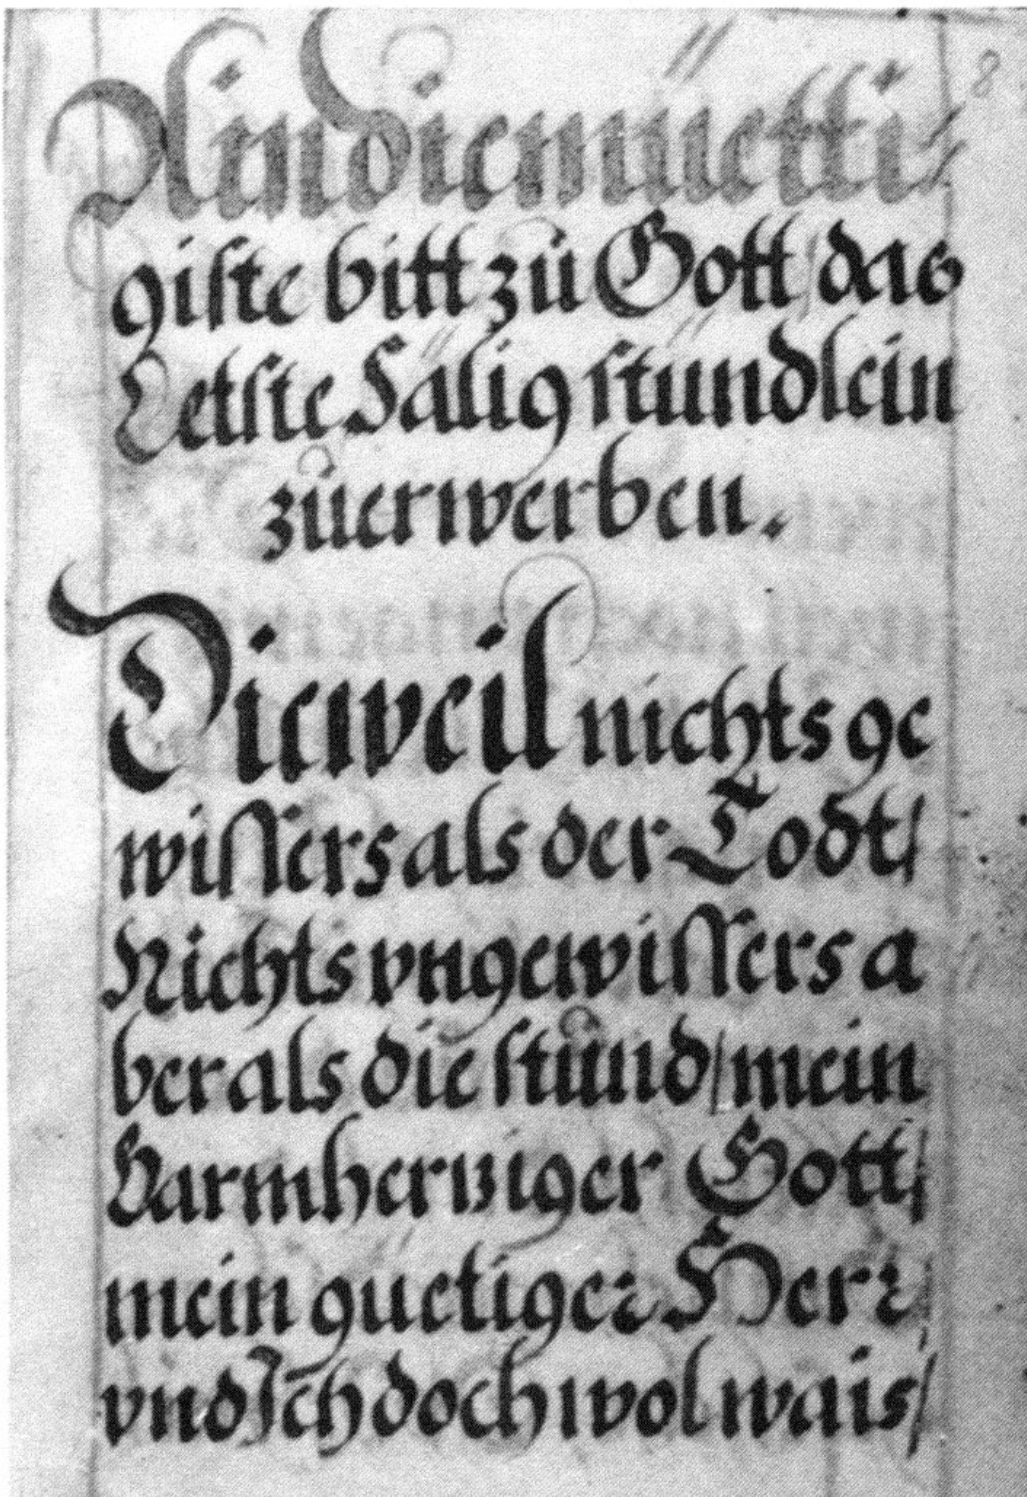 8
Ain diemüetti⸗
giste bitt zů Gott / das
Letste Sälig stündlein
zůerwerben.
Dieweil nichts ge
wissers als der Todt /
Nichts vngewissers a
ber als die stůnd / mein
Barmhertziger Gott /
mein guetiger Herr
vnd Ich doch wol wais /